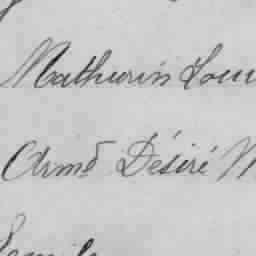 Mathurin Lou
Armd Désiré M